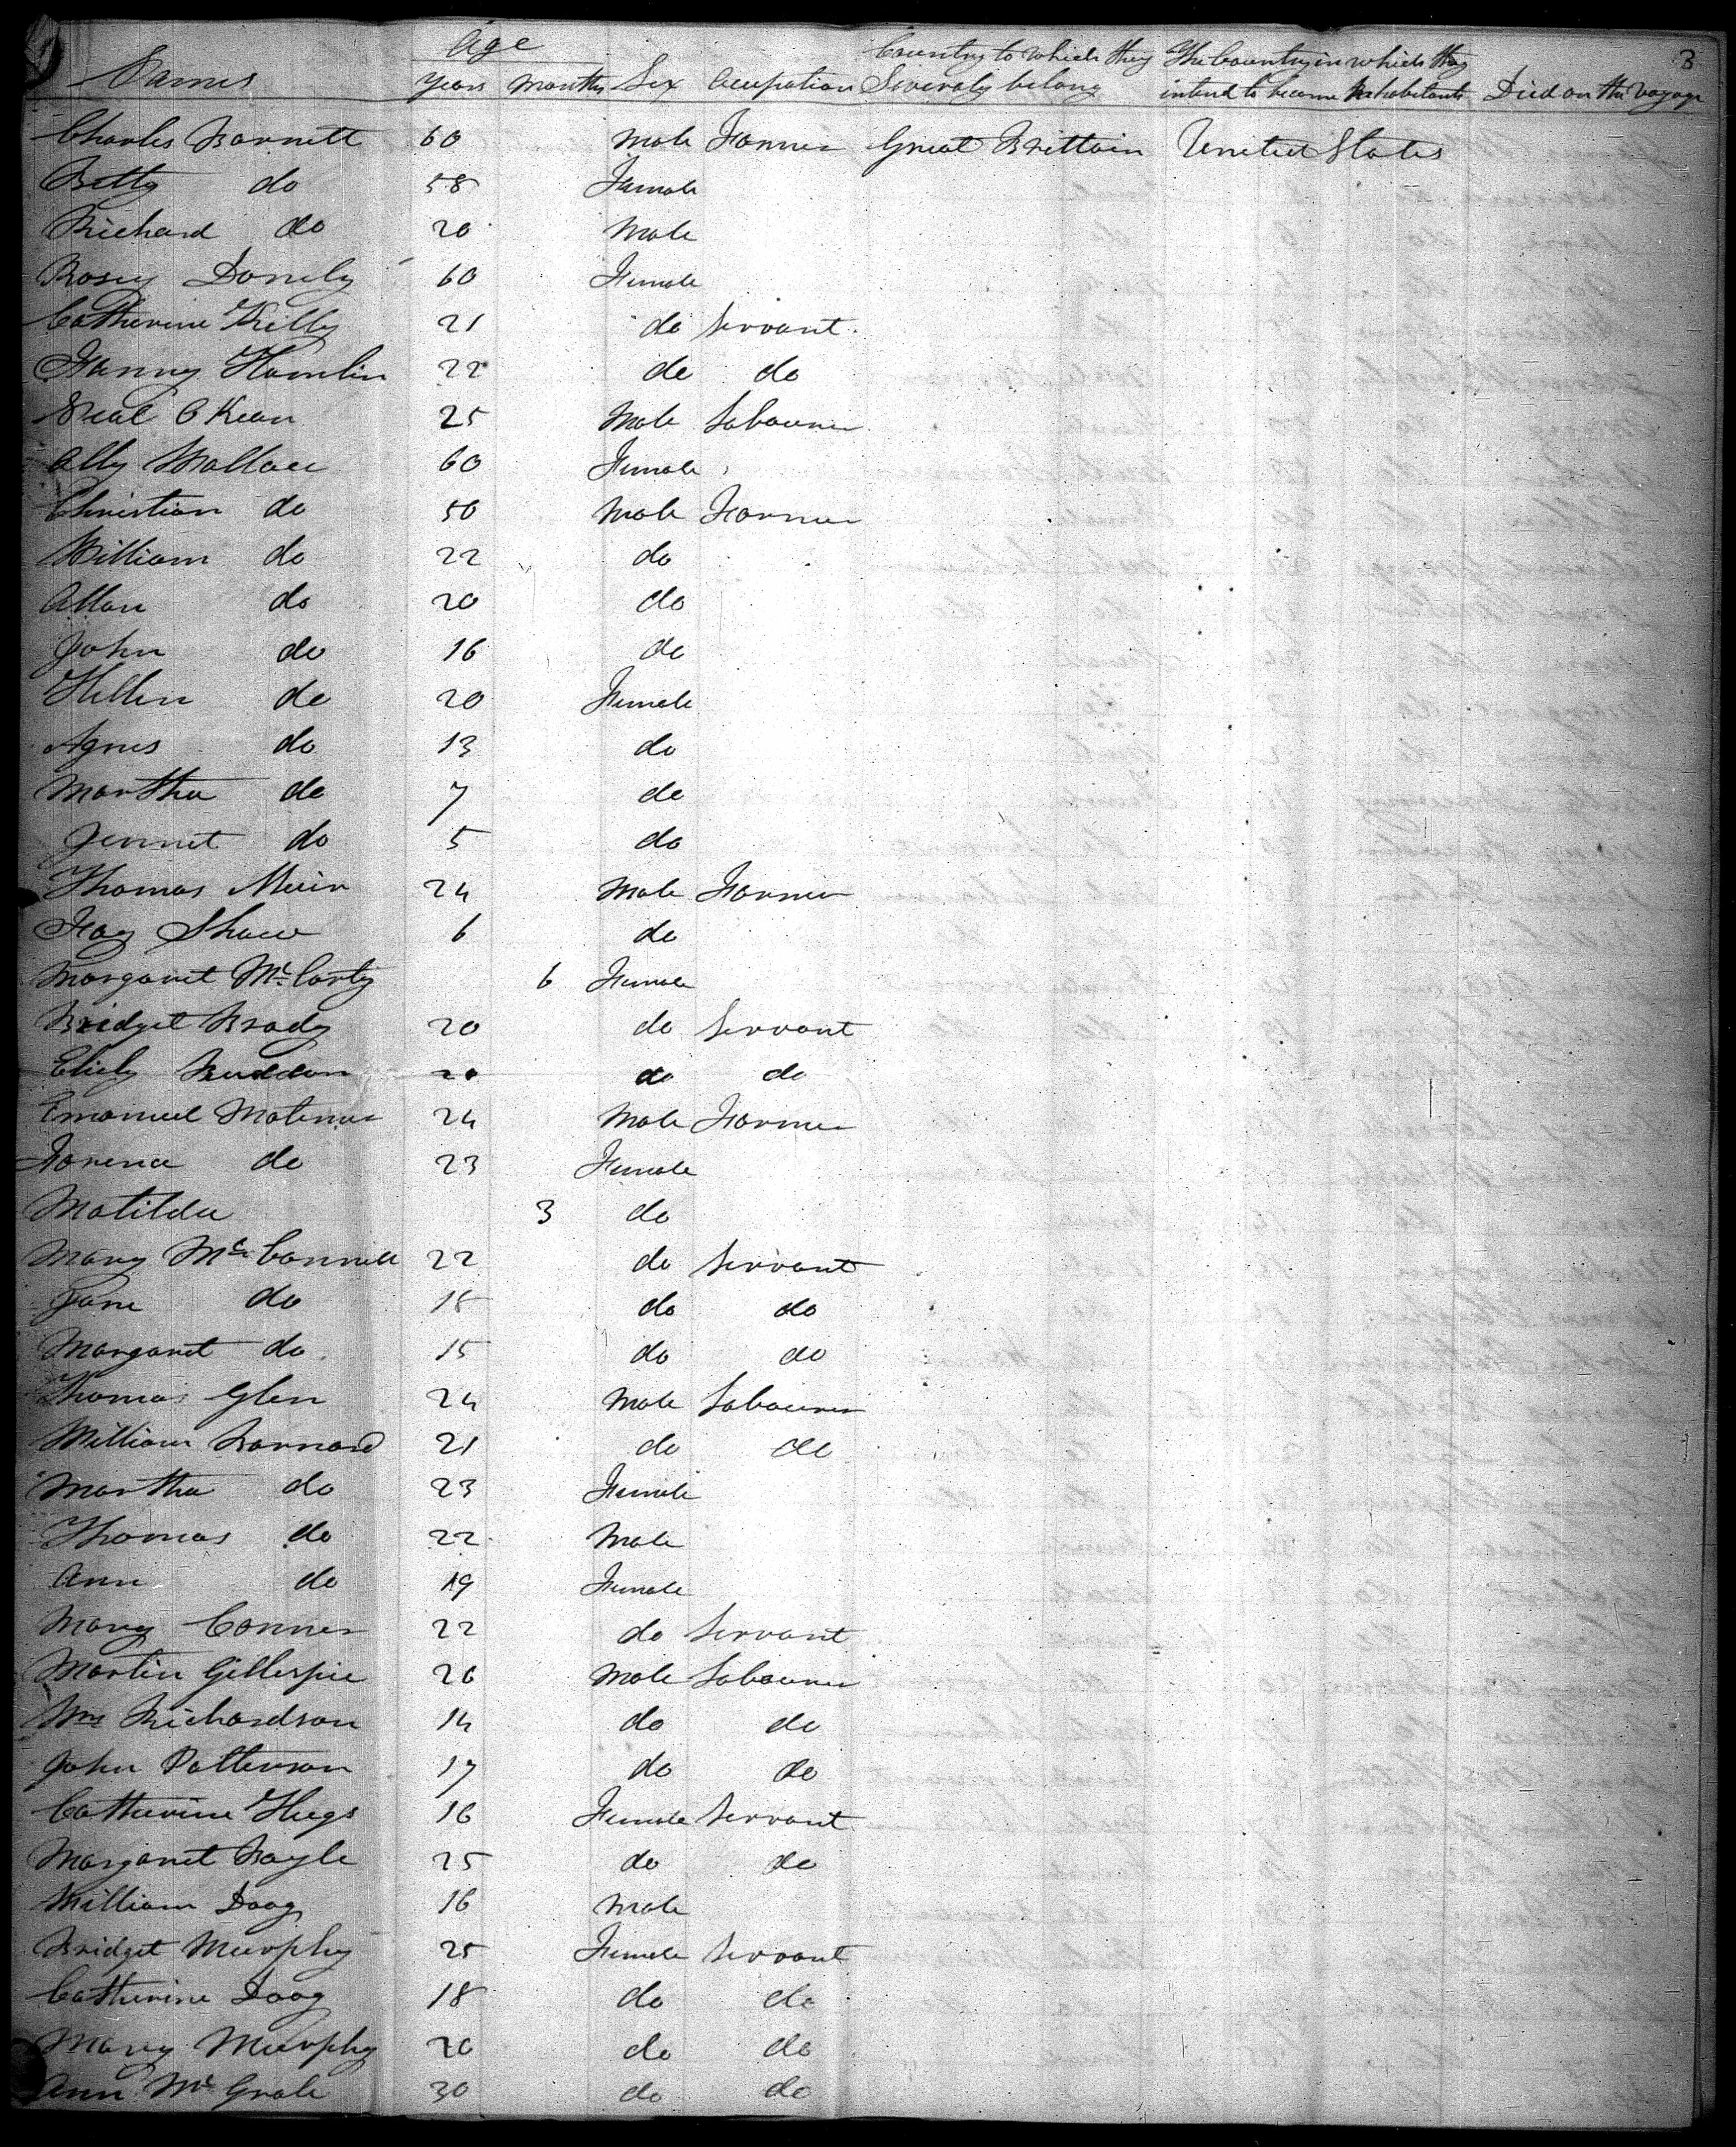 3
Names Age Years Months Sex Occupation Country to which they Severaly belong The Country in which they intend to become Inhabitants Died on the Voyage
Charles Barnett 60 Male Farmer Great Brittain United States
Betty do 58 Female
Richard do 20 Male
Rosey Donely 60 Female
Catherine Killy 21 do Servant
Fanny Hamlin 22 do do
Neal O Kean 25 Male Labourer
Ally Wallace 60 Female
Christian do 50 Male Farmer
William do 22 do
Allan do 20 do
John do 16 do
Hellen do 20 Female
Agnes do 13 do
Martha do 7 do
Jennet do 5 do
Thomas Muir 24 Male Farmer
Shaw 6 do
Margaret Mc Carty 6 Female
Bridget Brady 20 do Servant
20 do do
Emanuel 24 Male Farmer
do 23 Female
Matilda 3 do
Mary Mc Connell 22 do Servant
Jane do 18 do do
Margaret do 15 do do
Thomas Glen 24 Male Labourer
William Barnard 21 do do
Martha do 23 Female
Thomas do 22 Male
Ann do 19 Female
Mary Conner 22 do Servant
Martin Gillespie 26 Male Labourer
Wm Richardson 14 do do
John Patterson 17 do do
Catherine Hugs 16 Female Servant
Margaret Boyle 25 do do
William Doog 16 Male
Bridget Murphy 25 Female Servant
Catherine Doog 18 do do
Mary Murphy 20 do do
Ann Mc Grale 30 do do